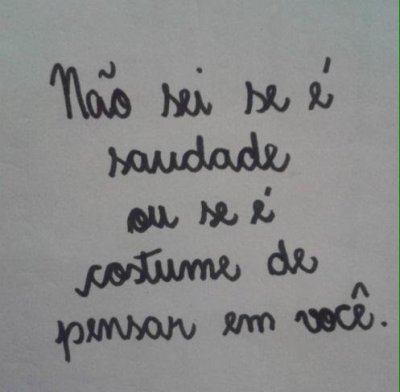 Não sei se é
saudade
ou se é
costume de
pensar em você.